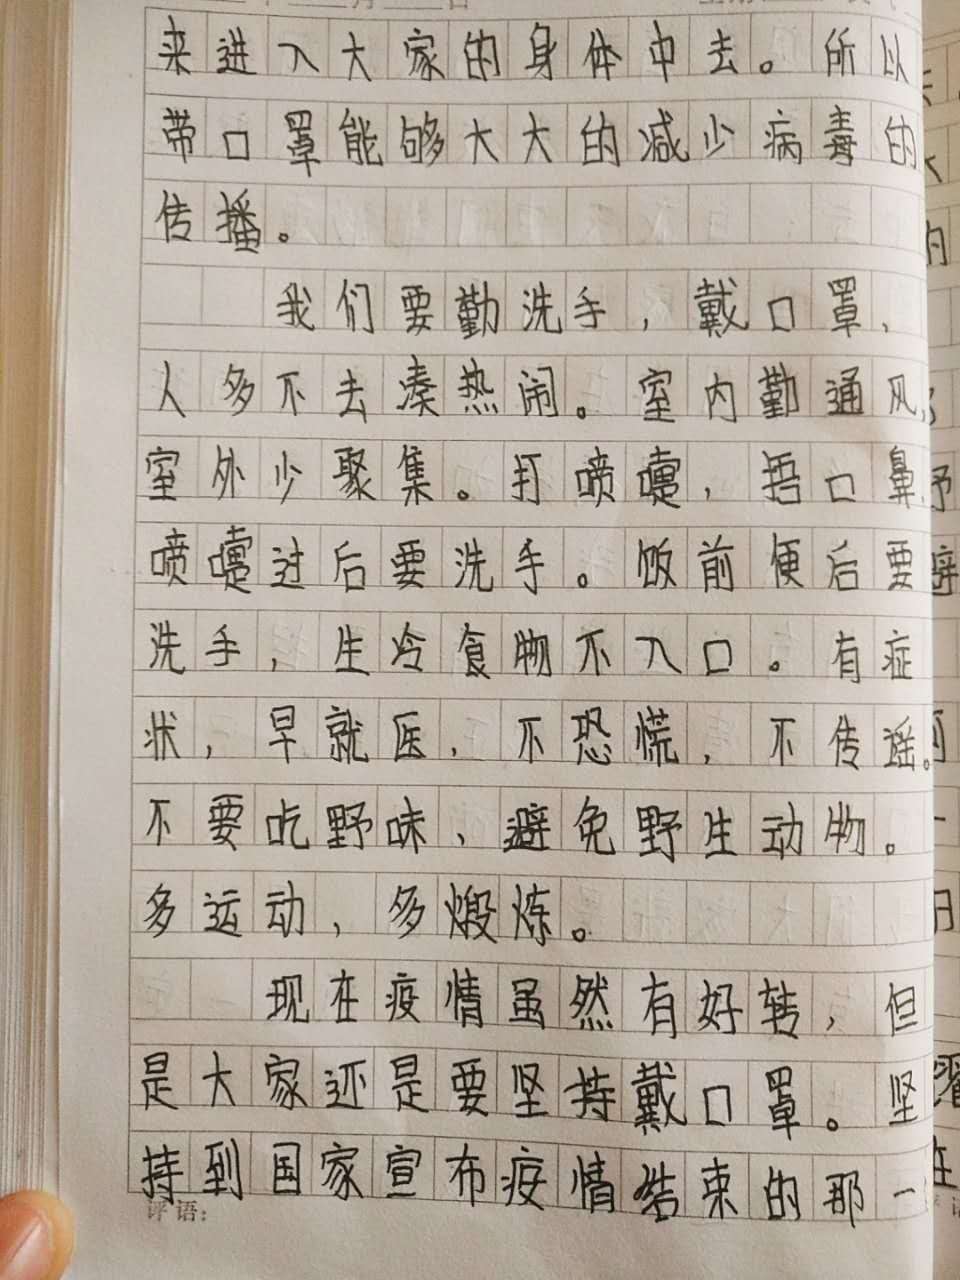 来进入大家的身体中去。所以
带口罩能够大大的减少病毒的
传播。
我们要勤洗手，戴口罩，
人多不去凑热闹。室内勤通风，
室外少聚集。打喷嚏，捂口鼻，
喷嚏过后要洗手。饭前便后要
洗手，生冷食物不入口。有症
状，早就医，不恐慌，不传谣。
不要吃野味、避免野生动物。
多运动，多煅炼。
现在疫情虽然有好转，但
是大家还是要坚持戴口罩。坚
持到国家宣布疫情结束的那一
评语：